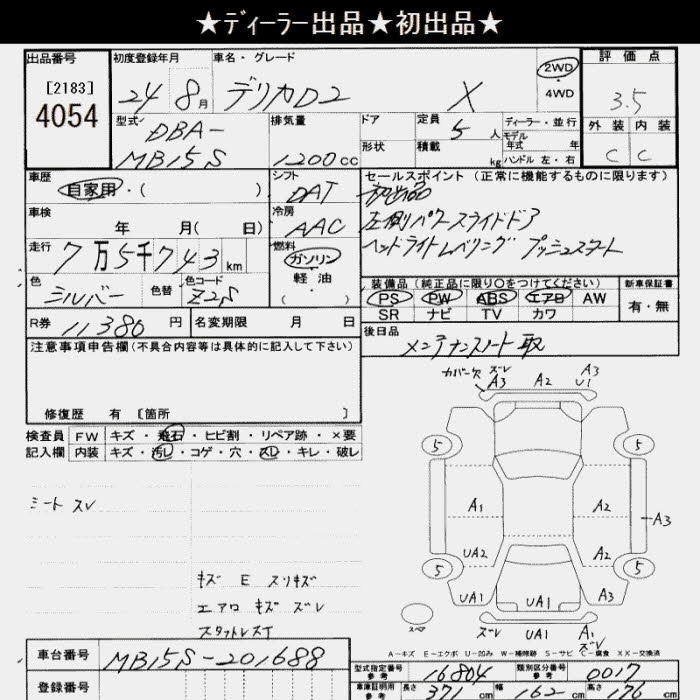 ★ディーラー出品★初出品★
出品番号 初度登録年月 車名・グレード 2WD 評価点
[2183] 24 8月 デリカD2 X 4WD 3.5
4054 型式 排気量 ドア 定員 ディーラー・並行 外装 内装
DBA- 5人 モデル年式 年
MB15S 1200cc 形状 積載 kg ハンドル 左・右 C C
車歴 シフト セールスポイント (正常に機能するものに限ります)
自家用・( ) DAT 初出品
車検 冷房 左側パワースライドドア
年 月( 日) AAC ヘッドライトレベリング プッシュスタート
走行 燃料
7万5千743km ガソリン
色 色替 色コード 軽油 装備品 (純正品に限り○をつけてください) 新車保証書
シルバー Z2S ( ) PS PW ABS エアB AW 有・無
R券 名変期限 SR ナビ TV カワ
11380円 月 日 後日品
注意事項申告欄(不具合内容等は具体的に記入して下さい) メンテナンスノート 取
修復歴 有 [箇所 ]
カバー欠 ズレ A3 A2 A3 U1
検査員 FW キズ・飛石・ヒビ割・リペア跡・×要
記入欄 内装 キズ・汚レ・コゲ・穴・スレ・キレ・破レ
5 5
シート スレ
A1 A2 A3
UA2 A2
5 5
キズ E スリキズ
エアロ キズ ズレ
スタットレスT
UA1 UA1 UA1
スペア ズレ UA1 A1 ズレ
A−キズ E−エクボ U−凹み W−補修跡 S−サビ C−腐食 XX−交換済
車台番号 MB15S-201688
型式指定番号 参考 16804 類別区分番号 参考 0017
登録番号 車庫証明用 参考 長さ 371cm 幅 162cm 高さ 176cm